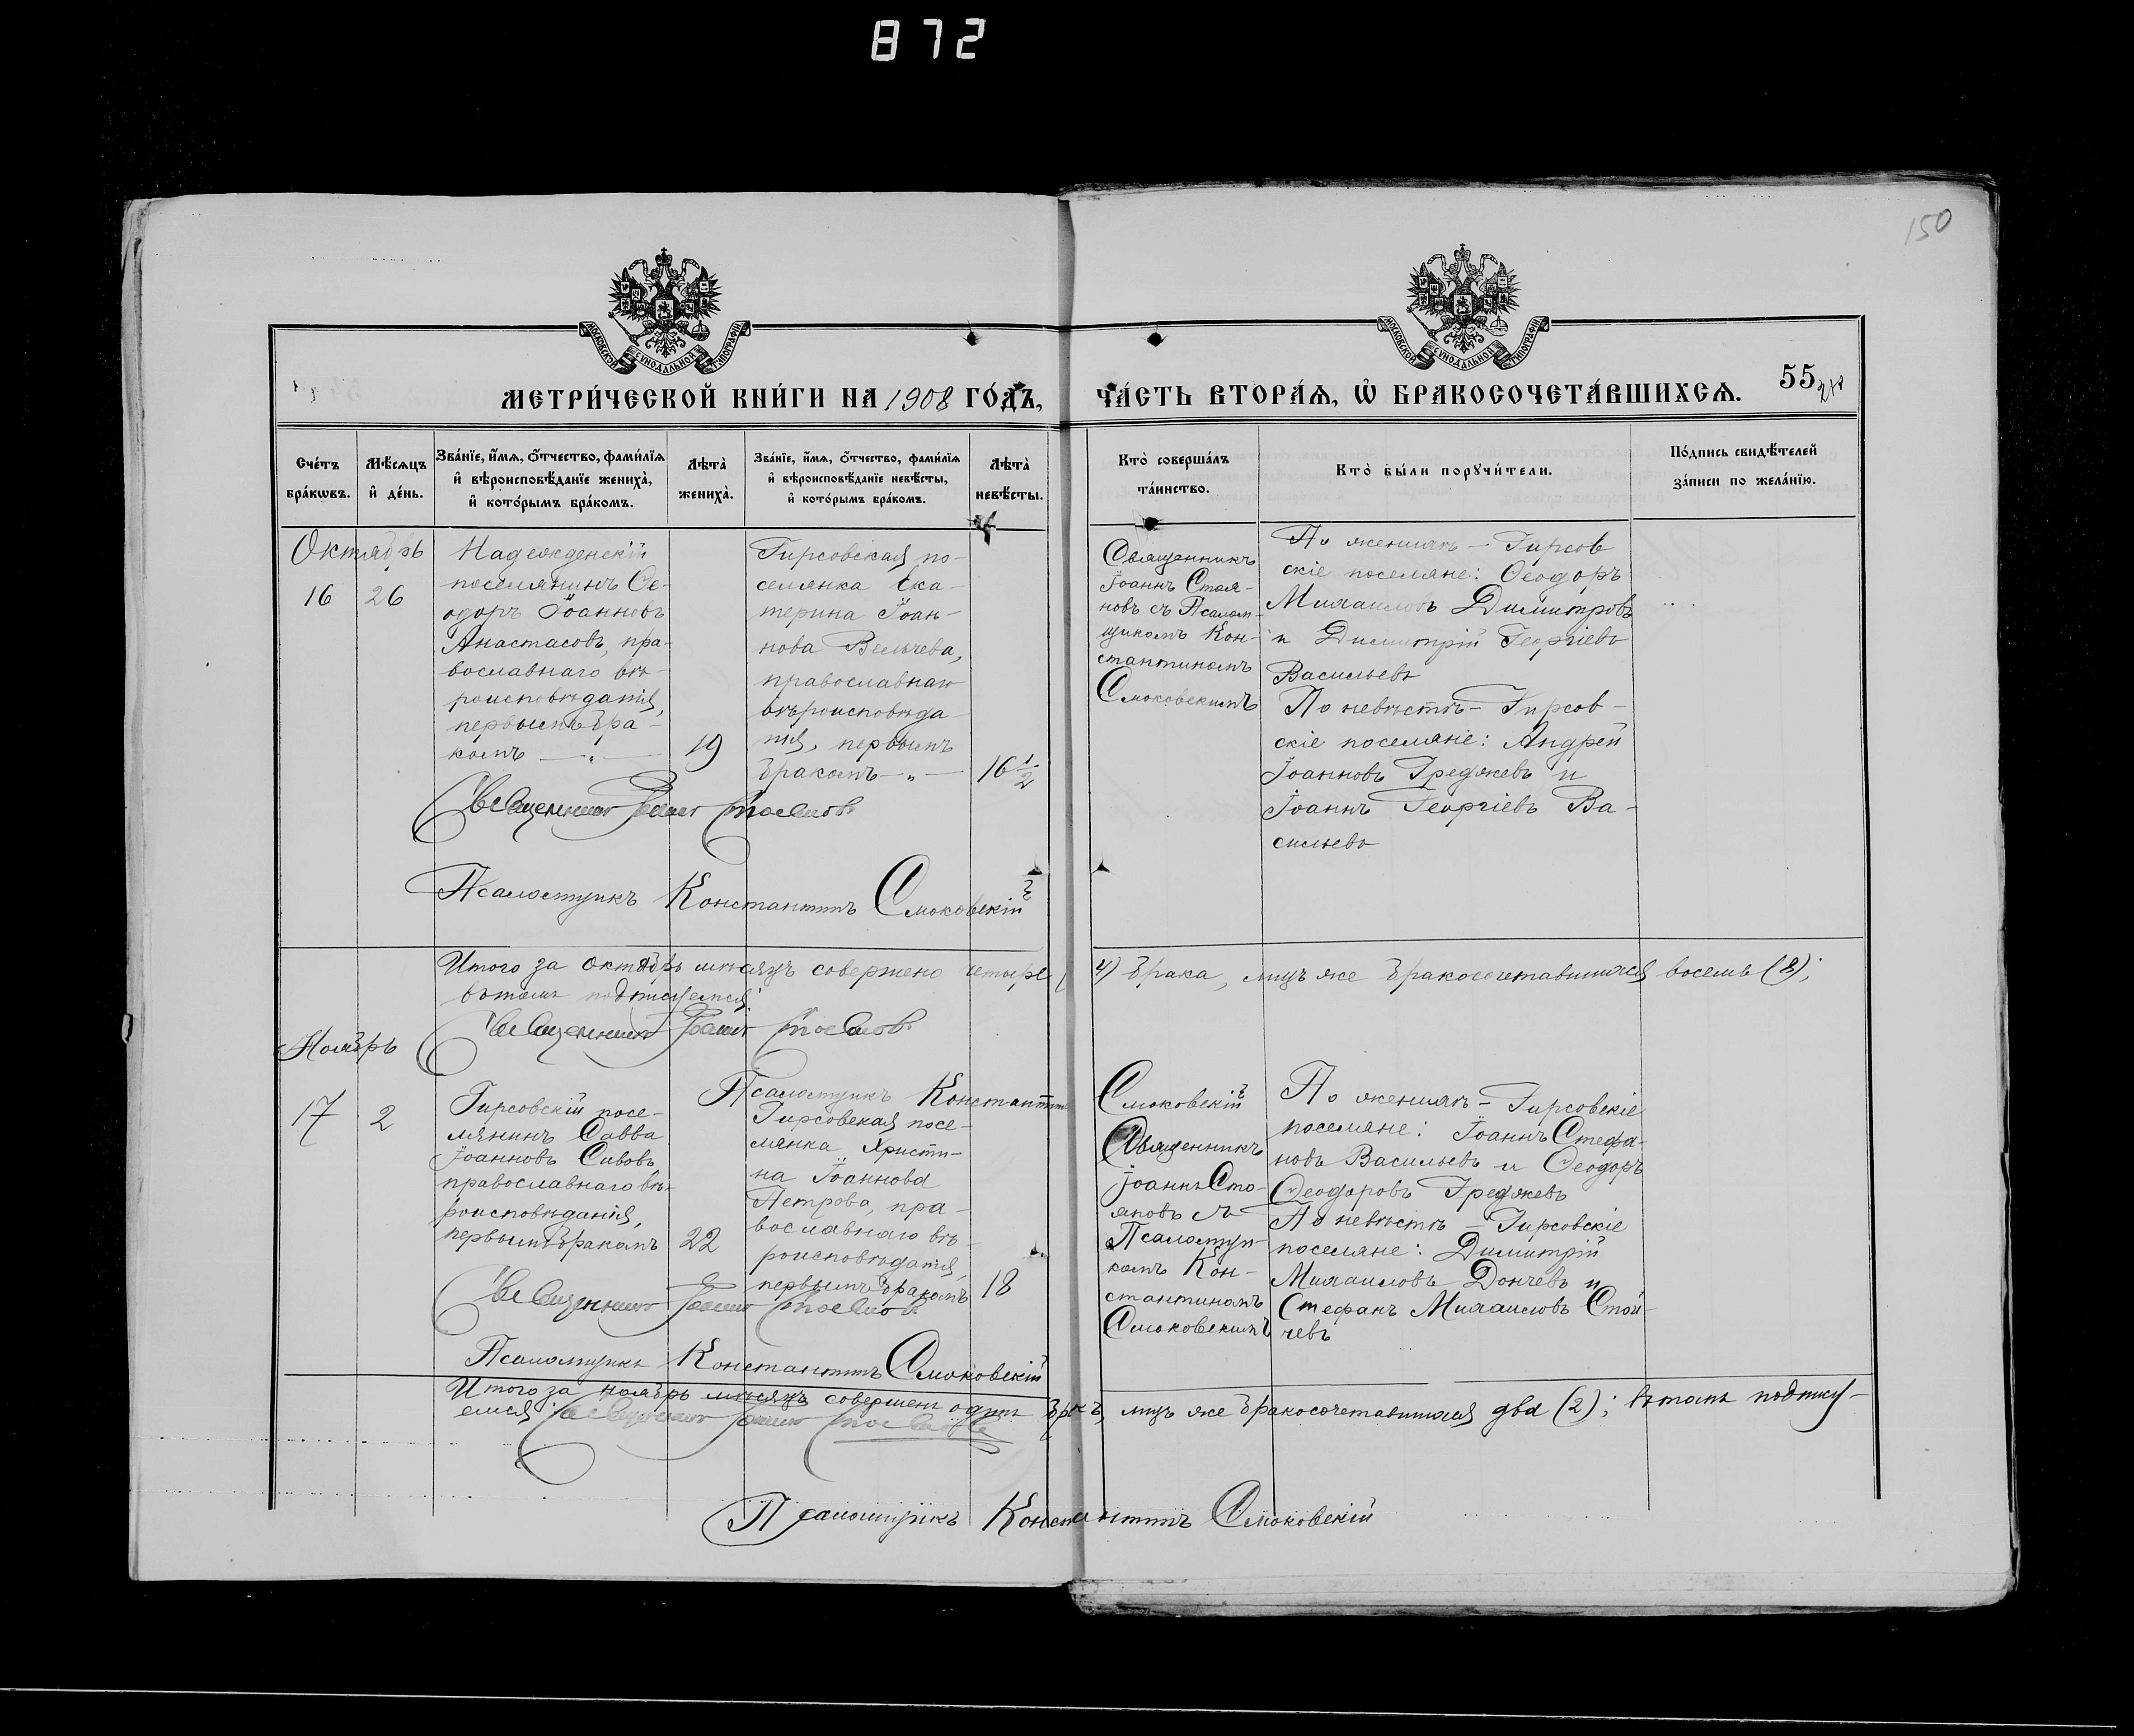 872
150
МОСКОВСКОЙ СѴНОДАЛЬНОЙ ТИПОГРАФІИ
МОСКОВСКОЙ СѴНОДАЛЬНОЙ ТИПОГРАФІИ
МЕТРИ́ЧЕСКОЙ КНИ́ГИ НА 1908 ГО́ДЪ,
ЧА́СТЬ ВТОРА́Ѧ, Ѿ БРАКОСОЧЕТА́ВШИХСѦ.
55
Сче́тъ бра́кѡвъ.
Мѣ́сѧцъ и҆ де́нь.
Зва́нїе, и҆́мѧ, ѻ҆́тчество, фами́лїѧ и҆ вѣроисповѣ́данїе жениха̀, и҆ кото́рымъ бра́комъ.
Лѣ́та̀ жениха̀.
Зва́нїе, и҆́мѧ, ѻ҆́тчество, фами́лїѧ и҆ вѣроисповѣ́данїе невѣ́сты, и҆ кото́рымъ бра́комъ.
Лѣ́та̀ невѣ́сты.
Кто̀ соверша́лъ та́инство.
Кто̀ бы́ли порꙋчи́тели.
По́дпись свидѣ́телей за́писи по жела́нїю.
Октябрь
16
26
Надежденскій
поселянинъ Ѳе-
одоръ Іоанновъ
Анастасовъ, пра-
вославнаго вѣ-
роисповѣданія,
первымъ бра-
комъ — „ —
19
Гирсовская по-
селянка Ека-
терина Іоан-
нова Вельчева,
православнаго
вѣроисповѣда-
нія, первымъ
бракомъ — „ —
16 1/2
Священникъ
Іоаннъ Стоя-
новъ съ Псалом-
щикомъ Кон-
стантиномъ
Смоковскимъ
По женихѣ — Гирсов
скіе поселяне: Ѳеодоръ
Михаиловъ Димитровъ
и Димитрій Георгіевъ
Васильевъ
По невѣстѣ — Гирсов-
скіе поселяне: Андрей
Іоанновъ Греджевъ и
Іоаннъ Георгіевъ Ва-
сильевъ
Священникъ Іоаннъ Стояновъ
Псаломщикъ Константинъ Смоковскій
Итого за октябрь мѣсяцъ совершено четыре (4) брака, лицъ же бракосочетавшихся восемь (8);
въ томъ подписуемся:
Священникъ Іоаннъ Стояновъ
Псаломщикъ Константинъ Смоковскій
Ноябрь
17
2
Гирсовскій посе-
лянинъ Савва
Іоанновъ Сивовъ,
православнаго вѣ-
роисповѣданія,
первымъ бракомъ
22
Гирсовская посе-
лянка Христи-
на Іоаннова
Петрова, пра-
вославнаго вѣ-
роисповѣданія,
первымъ бракомъ
18
Священникъ
Іоаннъ Сто-
яновъ съ
Псаломщи-
комъ Кон-
стантиномъ
Смоковскимъ
По женихѣ — Гирсовскіе
поселяне: Іоаннъ Стефа-
новъ Васильевъ и Ѳеодоръ
Ѳеодоровъ Греджевъ
По невѣстѣ — Гирсовскіе
поселяне: Димитрій
Михаиловъ Дончевъ и
Стефанъ Михаиловъ Стой-
чевъ
Священникъ Іоаннъ Стояновъ
Псаломщикъ Константинъ Смоковскій
Итого за ноябрь мѣсяцъ совершенъ одинъ бракъ, лицъ же бракосочетавшихся два (2); въ томъ подпису-
емся: Священникъ Іоаннъ Стояновъ
Псаломщикъ Константинъ Смоковскій